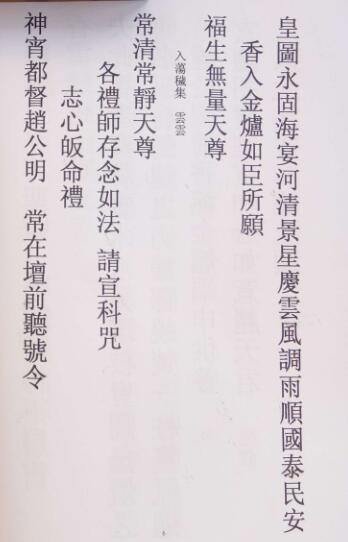 皇圖永固海宴河清景星慶雲風調雨順國泰民安
香入金爐如臣所願
福生無量天尊
入蕩穢集 雲雲
常清常靜天尊
各禮師存念如法 請宣科咒
志心皈命禮
神宵都督趙公明 常在壇前聽號令